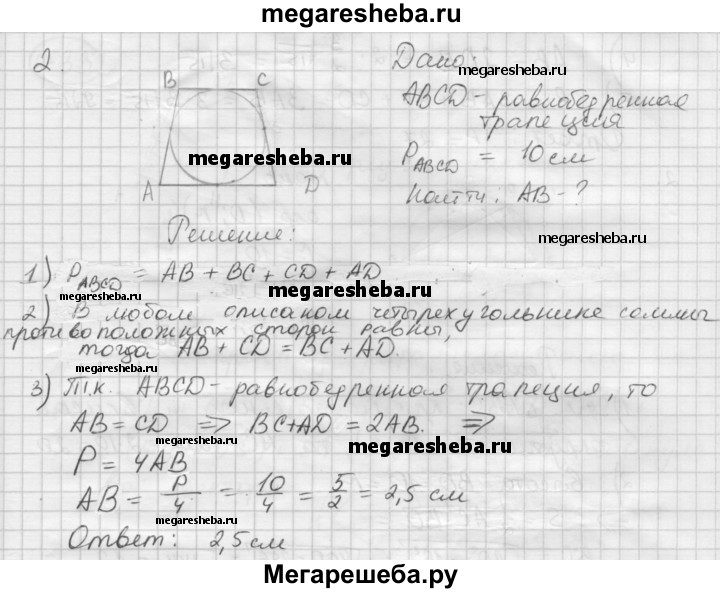 megaresheba.ru
2.
B C
A D
megaresheba.ru
Дано:
megaresheba.ru
ABCD - равнобедренная
трапеция
P ABCD = 10 см
Найти: AB - ?
megaresheba.ru
Решение:
1) P ABCD = AB + BC + CD + AD
megaresheba.ru
megaresheba.ru
2) В любом описаном четырехугольнике суммы
противоположных сторон равны,
тогда AB + CD = BC + AD.
megaresheba.ru
3) Т.к. ABCD - равнобедренная трапеция, то
AB = CD => BC + AD = 2AB. =>
megaresheba.ru
megaresheba.ru
P = 4AB
AB = P/4 = 10/4 = 5/2 = 2,5 см
megaresheba.ru
Ответ: 2,5 см
Мегарешеба.ру